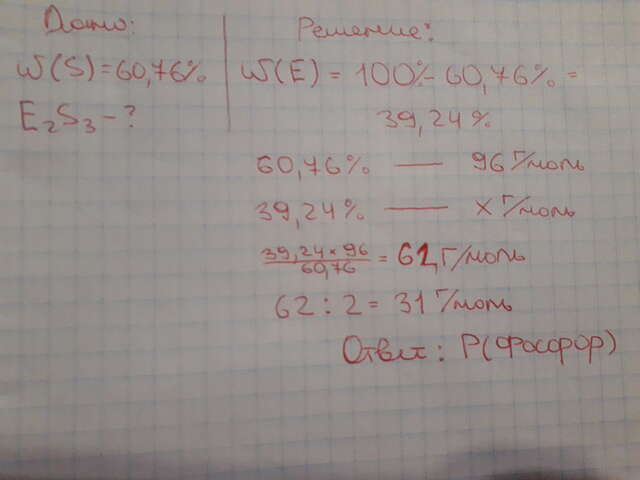 Дано:
W(S)=60,76%
E₂S₃ - ?
Решение:
W(E) = 100% - 60,76% =
39,24%
60,76% — 96 г/моль
39,24% — x г/моль
39,24 × 96 / 60,76 = 62 г/моль
62 : 2 = 31 г/моль
Ответ: P(фосфор)